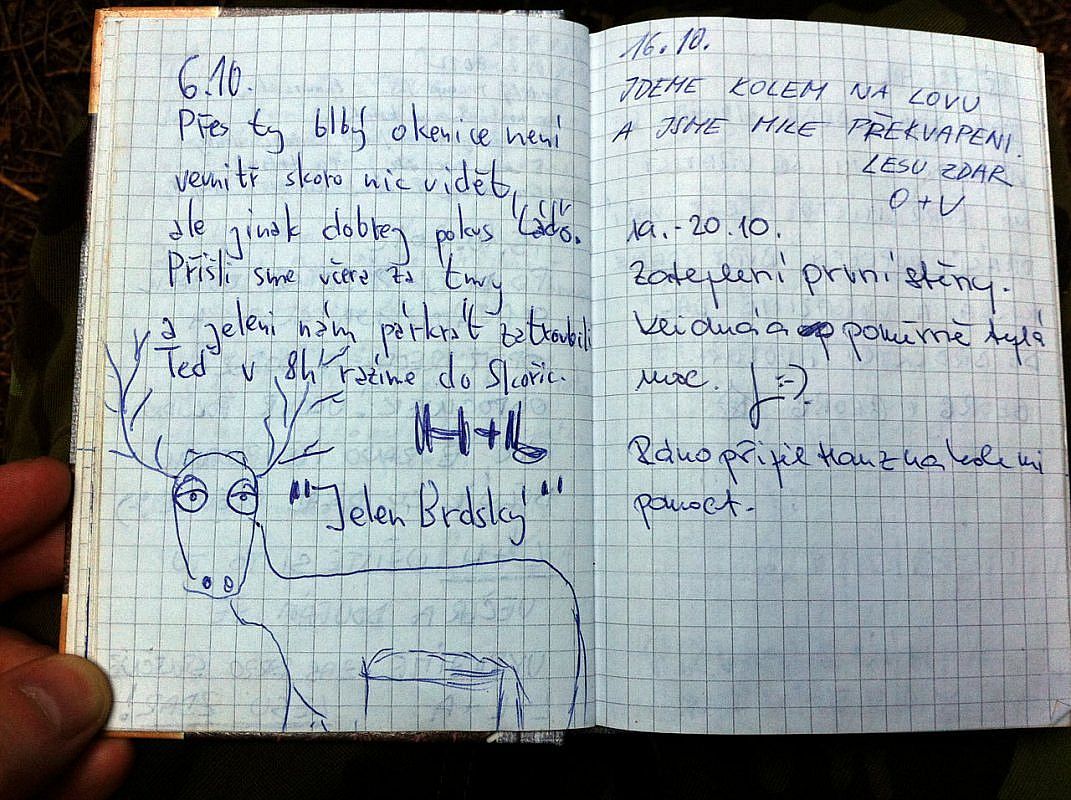 6.10.
Přes ty blbý okenice není
vevnitř skoro nic vidět,
ale jinak dobrej pokus Láďo.
Přišli sme včera za tmy
a jeleni nám párkrát zatroubili
Teď v 8h razíme do Skořic.
H+L
"Jelen Brdský"
16.10.
JDEME KOLEM NA LOVU
A JSME MILE PŘEKVAPENI.
LESU ZDAR
O+V
19.-20.10.
Zateplení první stěny.
poměrně bylá
moc. J :-)
Ráno přijel Honz na kole mi
pomoct.